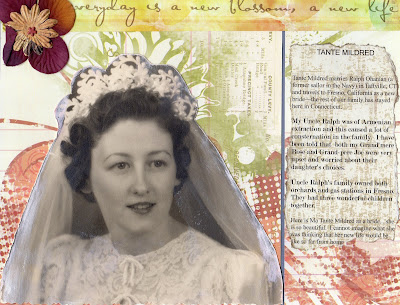 everyday is a new blossom, a new life
TANTE MILDRED
Tante Mildred marries Ralph Ohanian a
former sailor in the Navy in Taftville, CT
and moves to Fresno, California as a new
bride – the rest of our family has stayed
here in Connecticut.
My Uncle Ralph was of Armenian
extraction and this caused a lot of
consternation in the family. I have
been told that both my Grand'mere
Rose and Grand-pere Joe were very
upset and worried about their
daughter's choices.
Uncle Ralph's family owned both
orchards and gas stations in Fresno.
They had three wonderful children
together.
Here is My Tante Mildred as a bride
so beautiful. I cannot imagine what she
was thinking that her new life would be
like so far from home
COUNTY LEVEL
PRECINCT TABLE